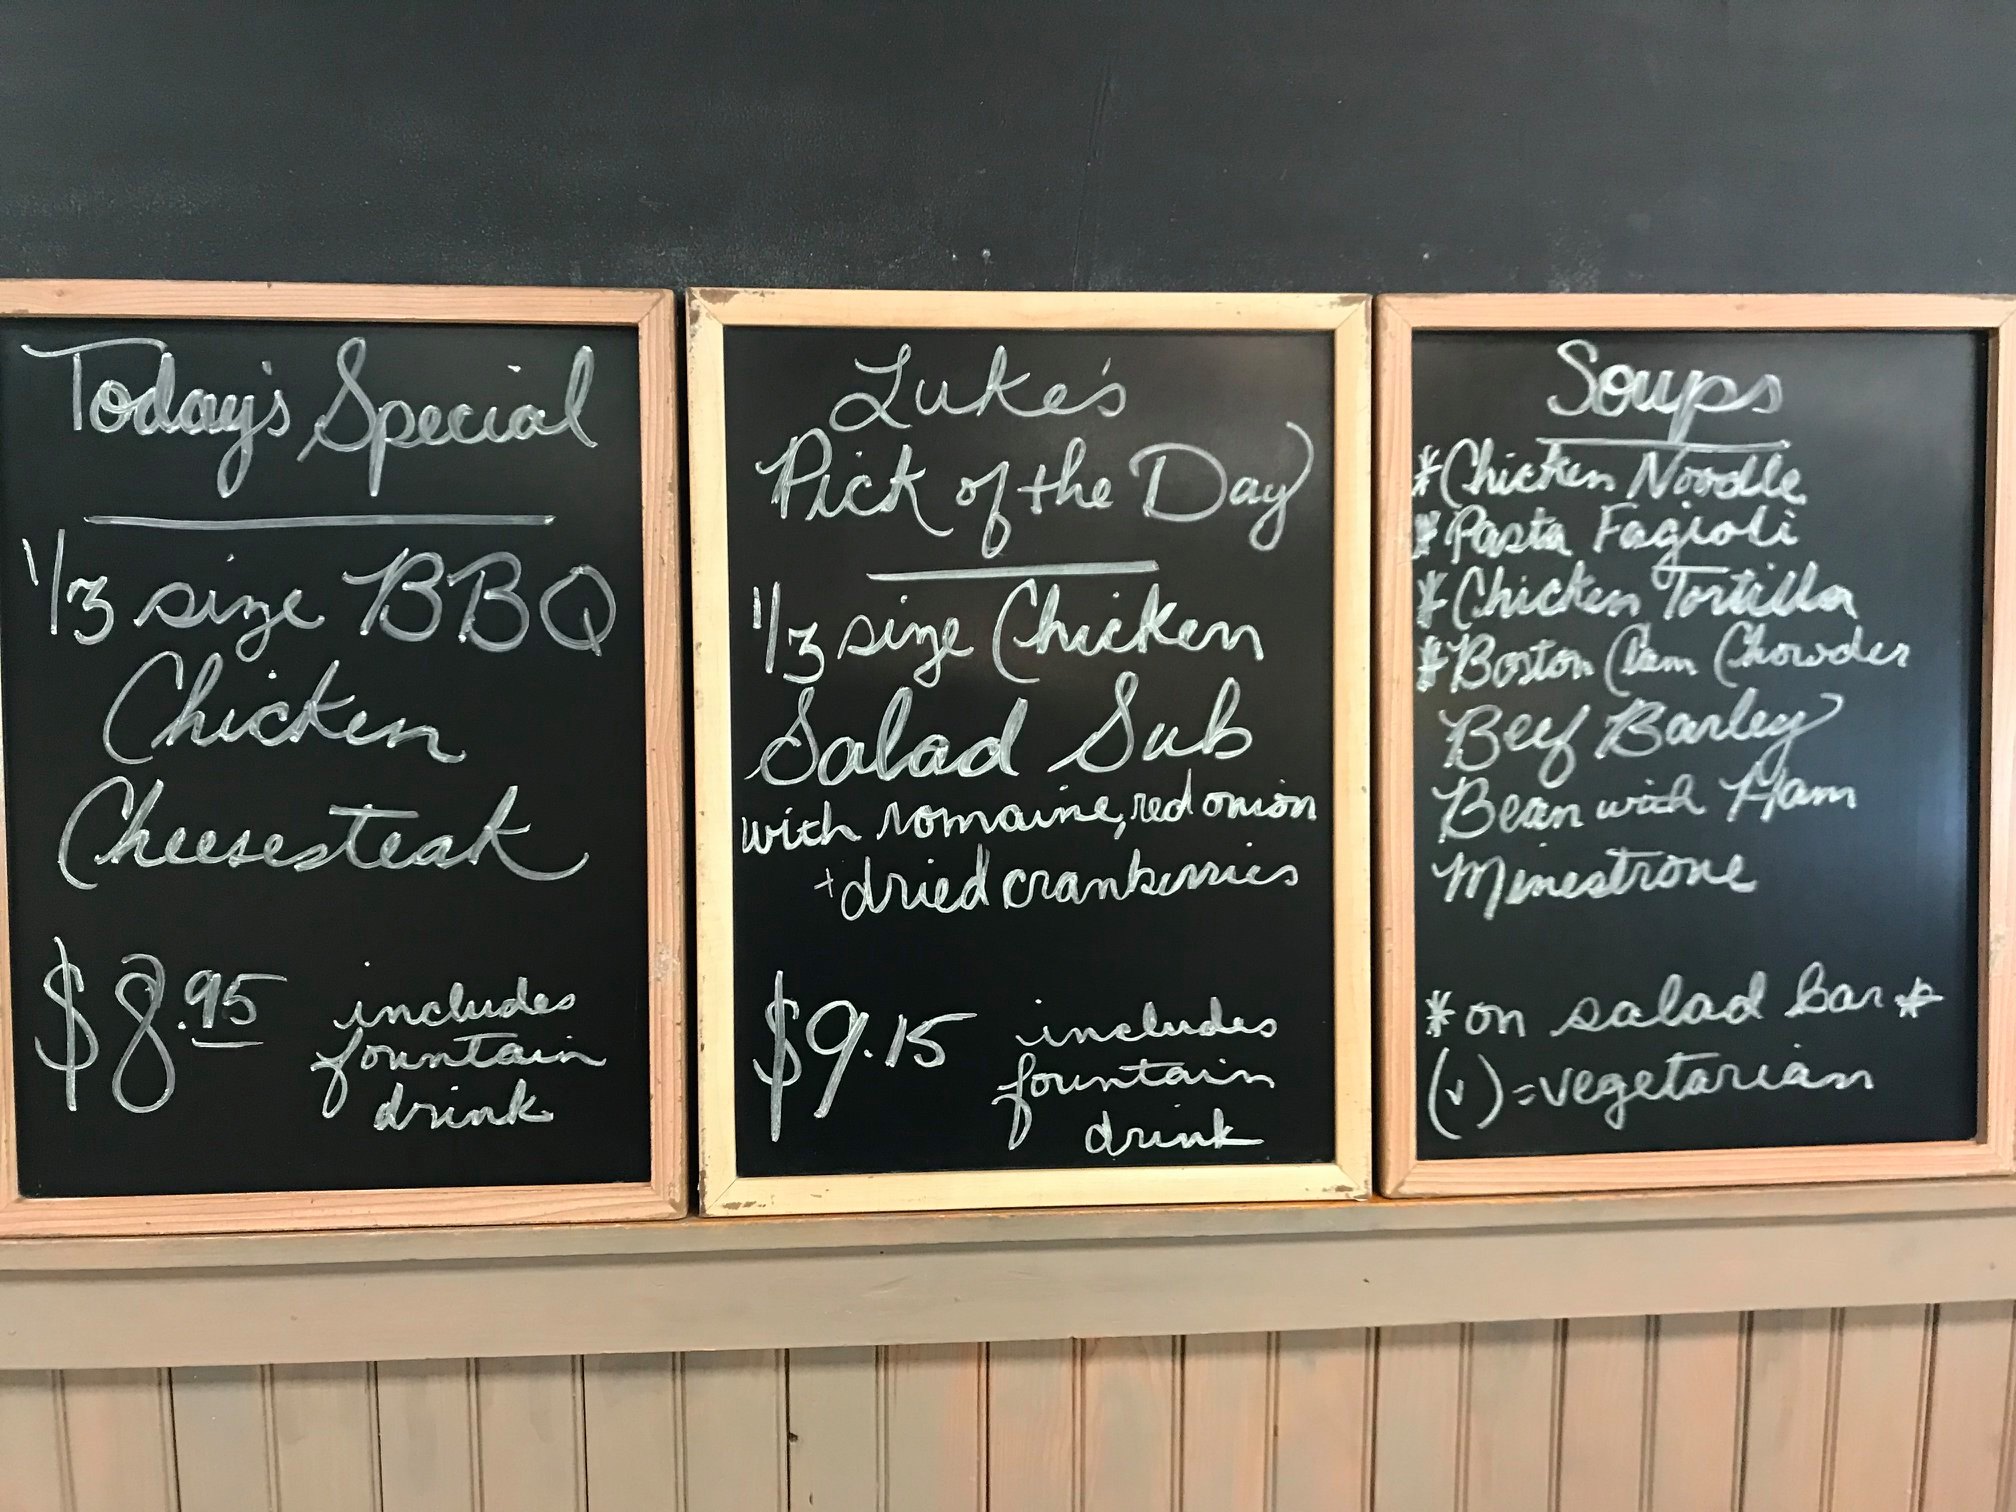 Today's Special
1/3 size BBQ
Chicken
Cheesesteak
$8.95 includes
fountain
drink
Luke's
Pick of the Day
1/3 size Chicken
Salad Sub
with romaine, red onion
+ dried cranberries
$9.15 includes
fountain
drink
Soups
*Chicken Noodle
*Pasta Fagioli
*Chicken Tortilla
*Boston Clam Chowder
Beef Barley
Bean with Ham
Minestrone
*on salad bar*
(v)=vegetarian